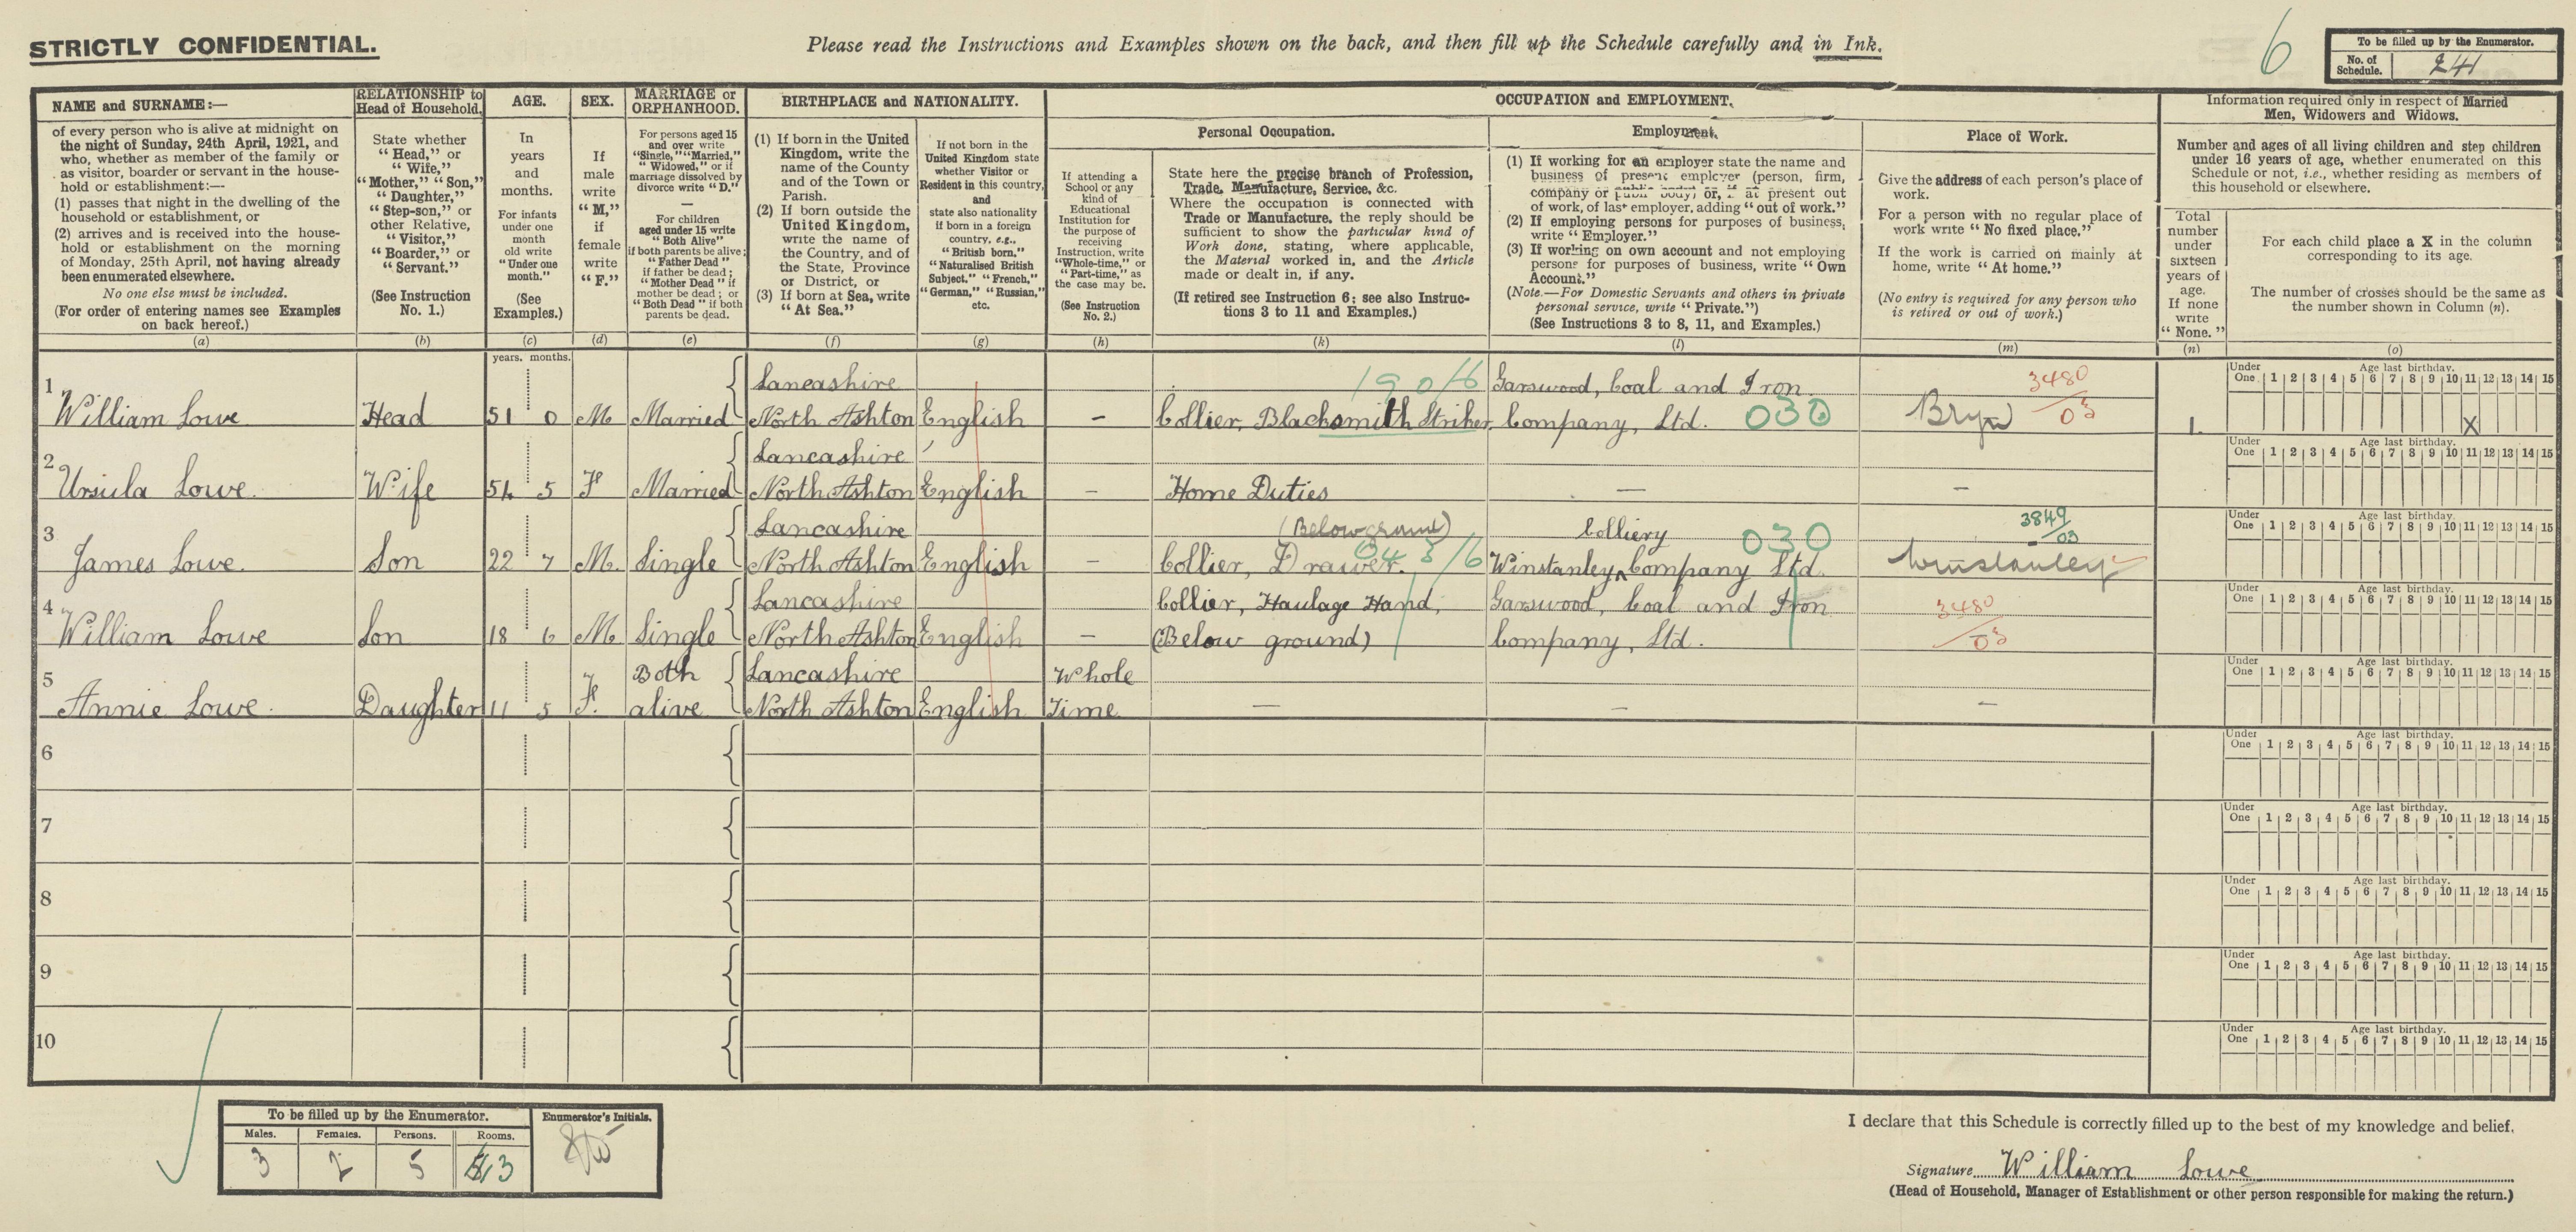 STRICTLY CONFIDENTIAL.
Please read the Instructions and Examples shown on the back, and then fill up the Schedule carefully and in Ink.
6
To be filled up by the Enumerator.
No. of Schedule. 241
NAME and SURNAME:—
of every person who is alive at midnight on
the night of Sunday, 24th April, 1921, and
who, whether as member of the family or
as visitor, boarder or servant in the house-
hold or establishment:—
(1) passes that night in the dwelling of the
household or establishment, or
(2) arrives and is received into the house-
hold or establishment on the morning
of Monday, 25th April, not having already
been enumerated elsewhere.
No one else must be included.
(For order of entering names see Examples
on back hereof.)
(a)
RELATIONSHIP to
Head of Household.
State whether
"Head," or
"Wife,"
"Mother," "Son,"
"Daughter,"
"Step-son," or
other Relative,
"Visitor,"
"Boarder," or
"Servant."
(See Instruction
No. 1.)
(b)
AGE.
In
years
and
months.
For infants
under one
month
old write
"Under one
month."
(See
Examples.)
(c)
SEX.
If
male
write
"M,"
if
female
write
"F."
(d)
MARRIAGE or
ORPHANHOOD.
For persons aged 15
and over write
"Single," "Married,"
"Widowed," or if
marriage dissolved by
divorce write "D."
—
For children
aged under 15 write
"Both Alive"
if both parents be alive;
"Father Dead"
if father be dead;
"Mother Dead" if
mother be dead; or
"Both Dead" if both
parents be dead.
(e)
BIRTHPLACE and NATIONALITY.
(1) If born in the United
Kingdom, write the
name of the County
and of the Town or
Parish.
(2) If born outside the
United Kingdom,
write the name of
the Country, and of
the State, Province
or District, or
(3) If born at Sea, write
"At Sea."
(f)
If not born in the
United Kingdom state
whether Visitor or
Resident in this country,
and
state also nationality
if born in a foreign
country, e.g.,
"British born,"
"Naturalised British
Subject," "French,"
"German," "Russian,"
etc.
(g)
OCCUPATION and EMPLOYMENT.
If attending a
School or any
kind of
Educational
Institution for
the purpose of
receiving
Instruction, write
"Whole-time," or
"Part-time," as
the case may be.
(See Instruction
No. 2.)
(h)
Personal Occupation.
State here the precise branch of Profession,
Trade, Manufacture, Service, &c.
Where the occupation is connected with
Trade or Manufacture, the reply should be
sufficient to show the particular kind of
Work done, stating, where applicable,
the Material worked in, and the Article
made or dealt in, if any.
(If retired see Instruction 6; see also Instruc-
tions 3 to 11 and Examples.)
(k)
Employment.
(1) If working for an employer state the name and
business of present employer (person, firm,
company or public body) or, if at present out
of work, of last employer, adding "out of work."
(2) If employing persons for purposes of business,
write "Employer."
(3) If working on own account and not employing
persons for purposes of business, write "Own
Account."
(Note.—For Domestic Servants and others in private
personal service, write "Private.")
(See Instructions 3 to 8, 11, and Examples.)
(l)
Place of Work.
Give the address of each person's place of
work.
For a person with no regular place of
work write "No fixed place."
If the work is carried on mainly at
home, write "At home."
(No entry is required for any person who
is retired or out of work.)
(m)
Information required only in respect of Married
Men, Widowers and Widows.
Number and ages of all living children and step children
under 16 years of age, whether enumerated on this
Schedule or not, i.e., whether residing as members of
this household or elsewhere.
Total
number
under
sixteen
years of
age.
If none
write
"None."
(n)
For each child place a X in the column
corresponding to its age.
The number of crosses should be the same as
the number shown in Column (n).
(o)
years. months.
Under One Age last birthday. 1 2 3 4 5 6 7 8 9 10 11 12 13 14 15
1 Lancashire 190/6 Garswood, Coal and Iron 3480
William Lowe Head 51 0 M Married North Ashton English – Collier, Blacksmith Striker. Company, Ltd. 030 Bryn 03 1. X
Under One Age last birthday. 1 2 3 4 5 6 7 8 9 10 11 12 13 14 15
2 Lancashire
Ursula Lowe. Wife 54 5 F Married North Ashton English – Home Duties – –
Under One Age last birthday. 1 2 3 4 5 6 7 8 9 10 11 12 13 14 15
3 Lancashire (Below ground) Colliery 030 3849/03
James Lowe. Son 22 7 M. Single North Ashton English – Collier, Drawer. 043/6 Winstanley ^ Company Ltd. Winstanley
Under One Age last birthday. 1 2 3 4 5 6 7 8 9 10 11 12 13 14 15
4 Lancashire Collier, Haulage Hand, Garswood, Coal and Iron 3480
William Lowe Son 18 6 M Single North Ashton English – (Below ground) Company, Ltd. 03
Under One Age last birthday. 1 2 3 4 5 6 7 8 9 10 11 12 13 14 15
5 Both Lancashire Whole
Annie Lowe. Daughter 11 5 F. alive North Ashton English Time – – –
Under One Age last birthday. 1 2 3 4 5 6 7 8 9 10 11 12 13 14 15
6
Under One Age last birthday. 1 2 3 4 5 6 7 8 9 10 11 12 13 14 15
7
Under One Age last birthday. 1 2 3 4 5 6 7 8 9 10 11 12 13 14 15
8
Under One Age last birthday. 1 2 3 4 5 6 7 8 9 10 11 12 13 14 15
9
Under One Age last birthday. 1 2 3 4 5 6 7 8 9 10 11 12 13 14 15
10
Under One Age last birthday. 1 2 3 4 5 6 7 8 9 10 11 12 13 14 15
To be filled up by the Enumerator. Enumerator's Initials.
Males. Females. Persons. Rooms.
3 2 5 3
I declare that this Schedule is correctly filled up to the best of my knowledge and belief.
Signature William Lowe
(Head of Household, Manager of Establishment or other person responsible for making the return.)